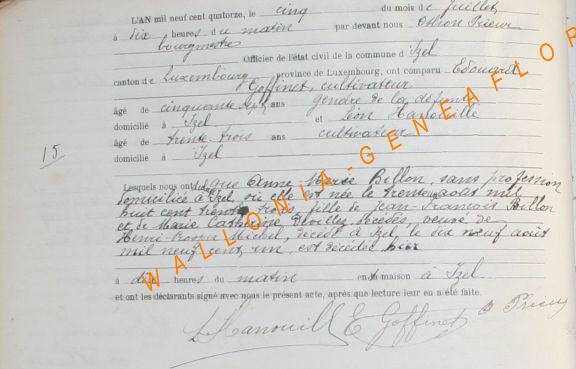 L'AN mil neuf cent quatorze, le cinq du mois de Juillet,
à dix heures du matin par devant nous Othon Prieur
bourgmestre
Officier de l'état civil de la commune d' Izel
canton de Luxembourg, province de Luxembourg, ont comparu Edouard
Goffinet, cultivateur
âgé de cinquante ans gendre de la défunte
domicilié à Izel et Léon Hanouille
âgé de trente trois ans cultivateur
domicilié à Izel
15
Lesquels nous ont dit que Anne Marie Billon, sans profession
domiciliée à Izel, où elle est née le trente août mil
huit cent trente trois, fille de Jean-François Billon
et de Marie Catherine décédés, veuve de
Henri Michel, décédé à Izel, le dix neuf août
mil neuf cent un est décédée hier
à dix heures du matin en sa maison à Izel.
et ont les déclarants signé avec nous le présent acte, après que lecture leur en a été faite.
L Hanouill E Goffinet O Prieur
WALLONIA-GENEAFLOR